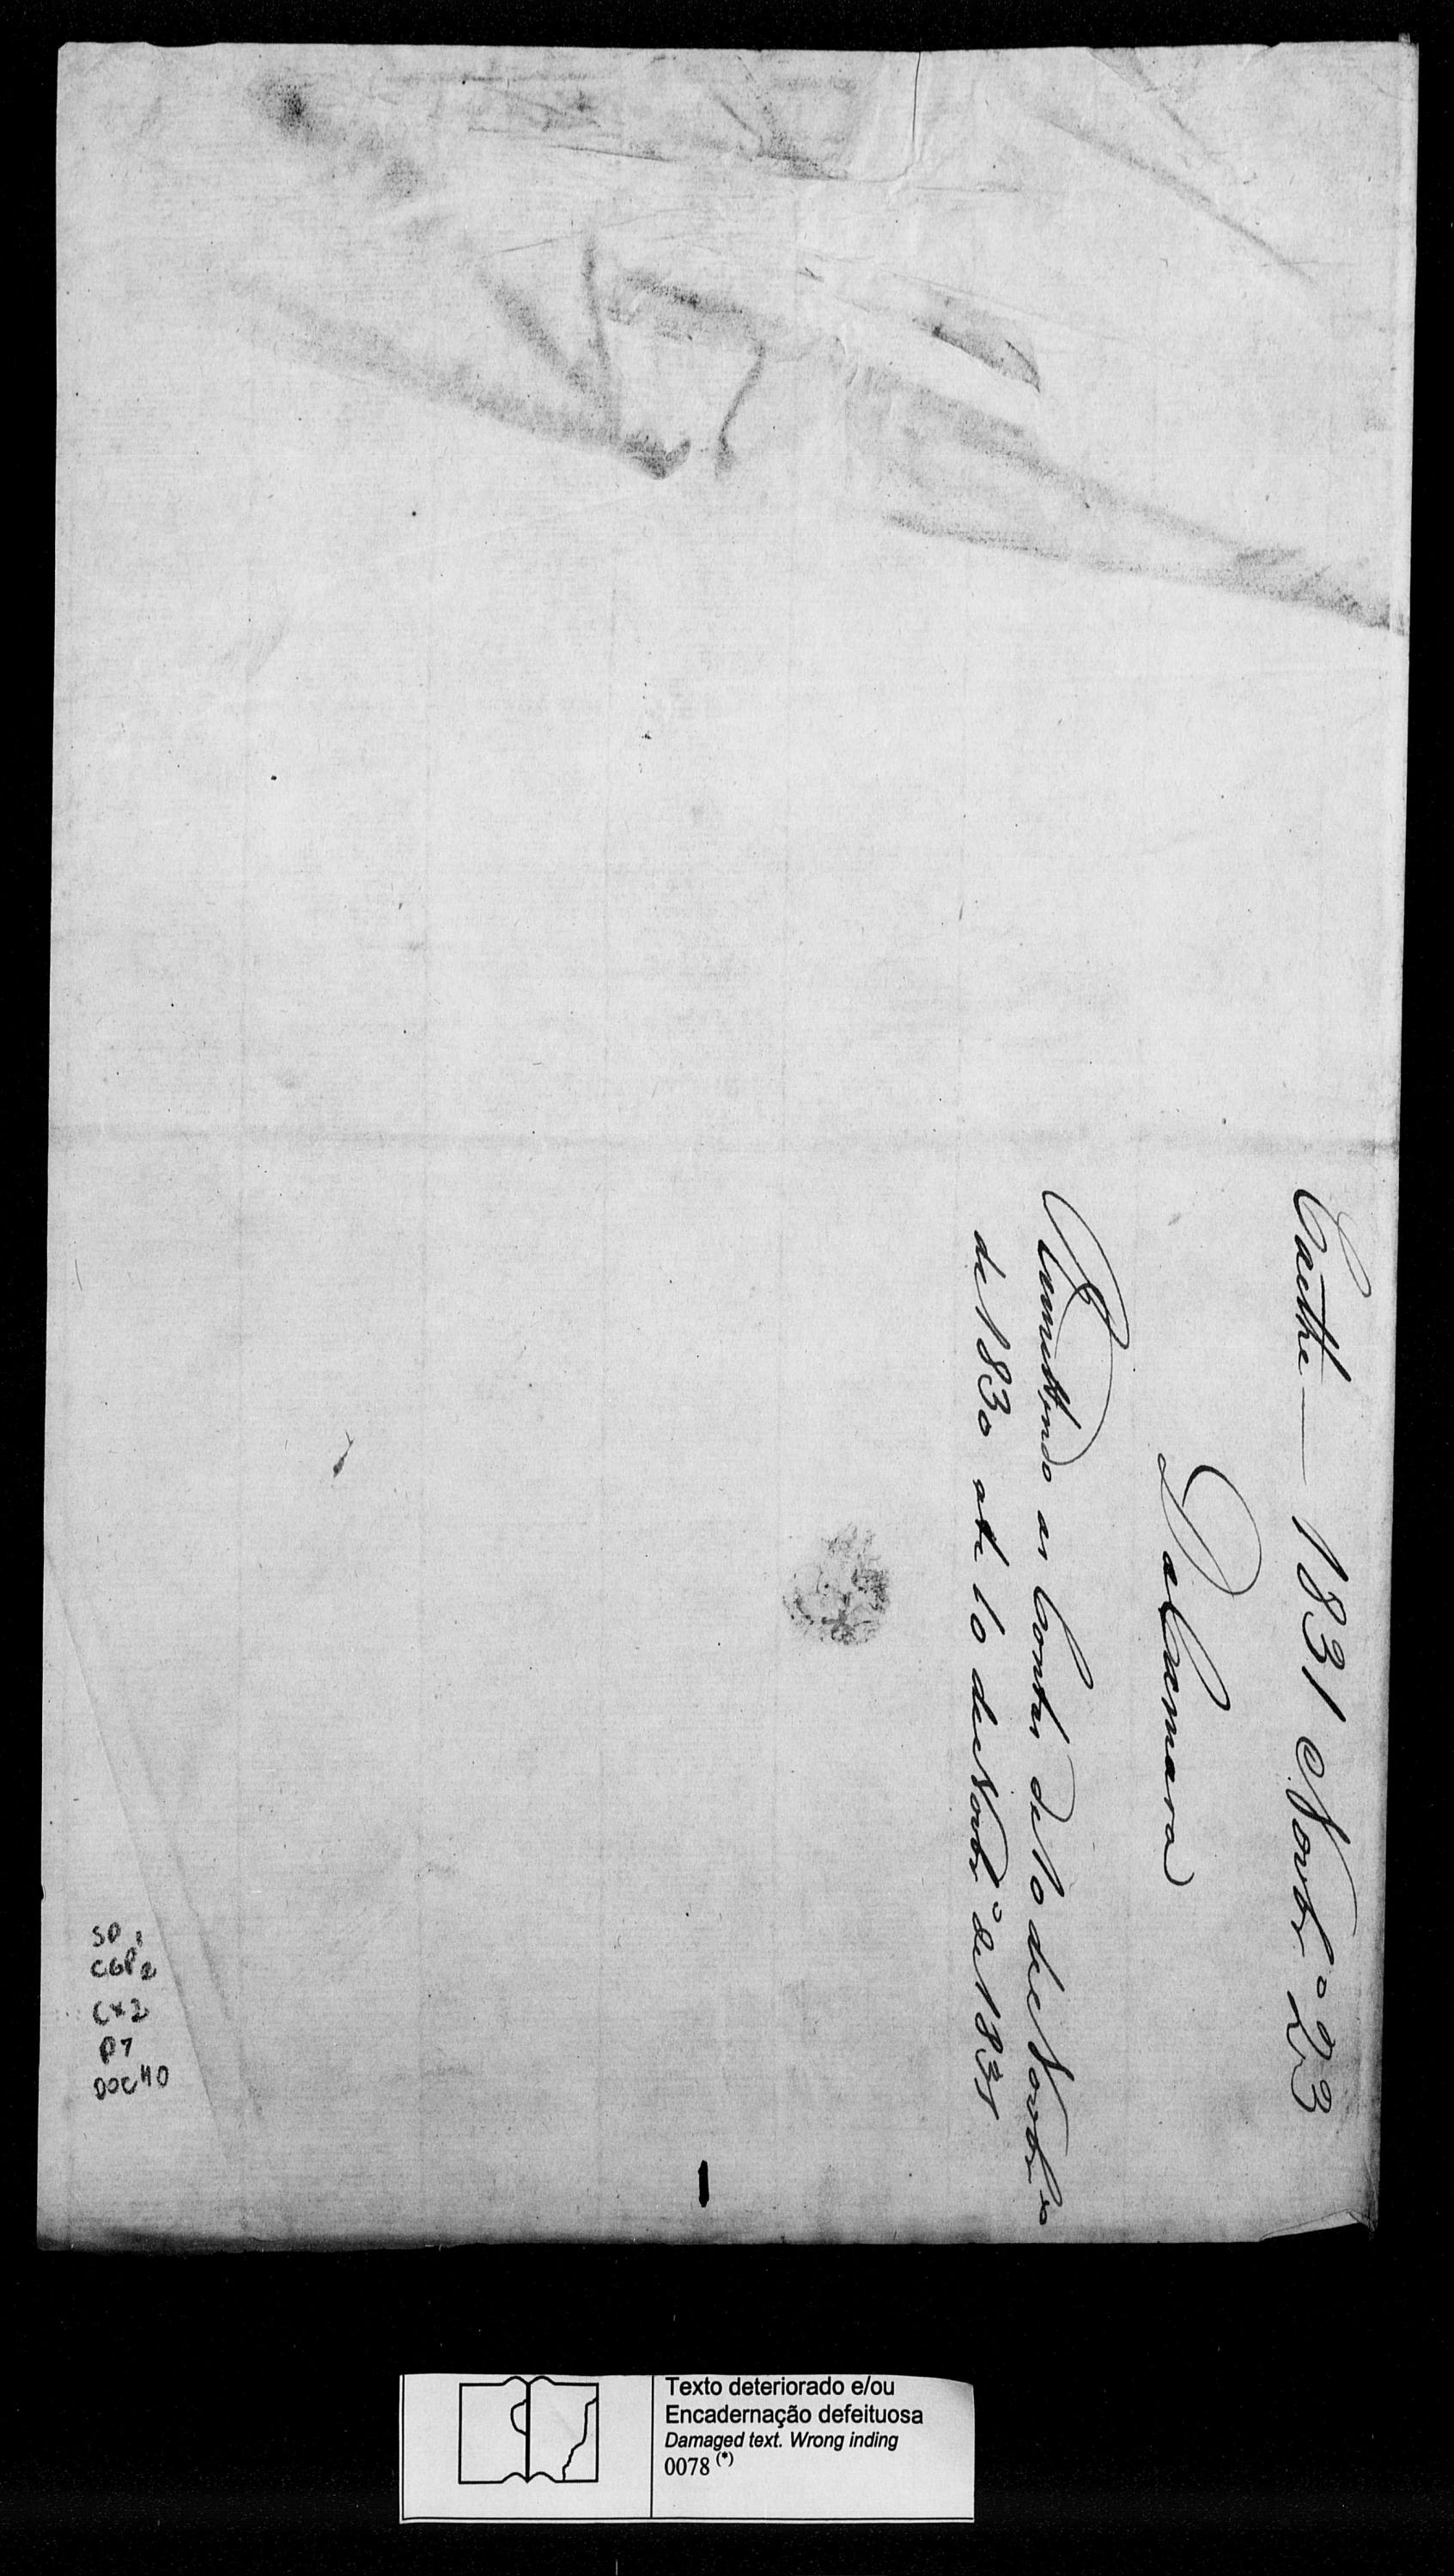 Caethe — 1831 Novbr.º 23
Da Camara
Remettendo as Contas de 10 de Novbr.º
de 1830 até 10 de Novbr.º de 1831
SP 1
CGP 2
CX2
P7
DOC 40
1
Texto deteriorado e/ou
Encadernação defeituosa
Damaged text. Wrong inding
0078 (*)